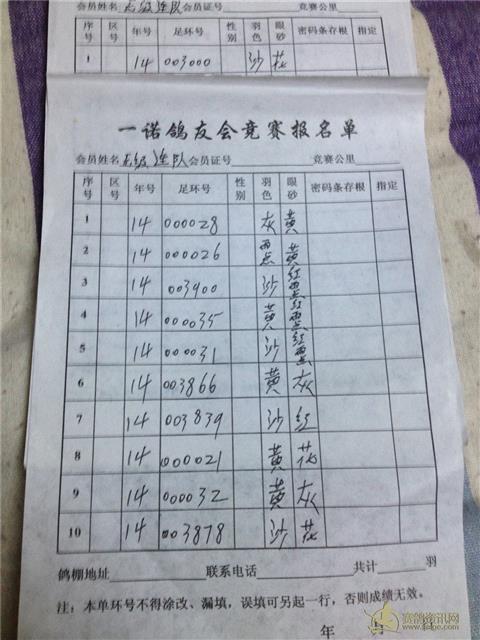 会员姓名 级连队 会员证号 竞赛公里
序号 区号 年号 足环号 性别 羽色 眼砂 密码条存根 指定
1 14 003000 沙 花
一诺鸽友会竞赛报名单
会员姓名 级连队 会员证号 竞赛公里
序号 区号 年号 足环号 性别 羽色 眼砂 密码条存根 指定
1 14 000028 灰 黄
2 14 000026 雨点 黄
3 14 003900 沙 红雨点
4 14 000035 黄 红雨点
5 14 000031 沙 红雨点
6 14 003866 黄 灰
7 14 003839 沙 红
8 14 000021 黄 花
9 14 000032 黄 灰
10 14 003878 沙 花
鸽棚地址 联系电话 共计 羽
注：本单环号不得涂改、漏填，误填可另起一行，否则成绩无效。
年 月
赛鸽资讯网